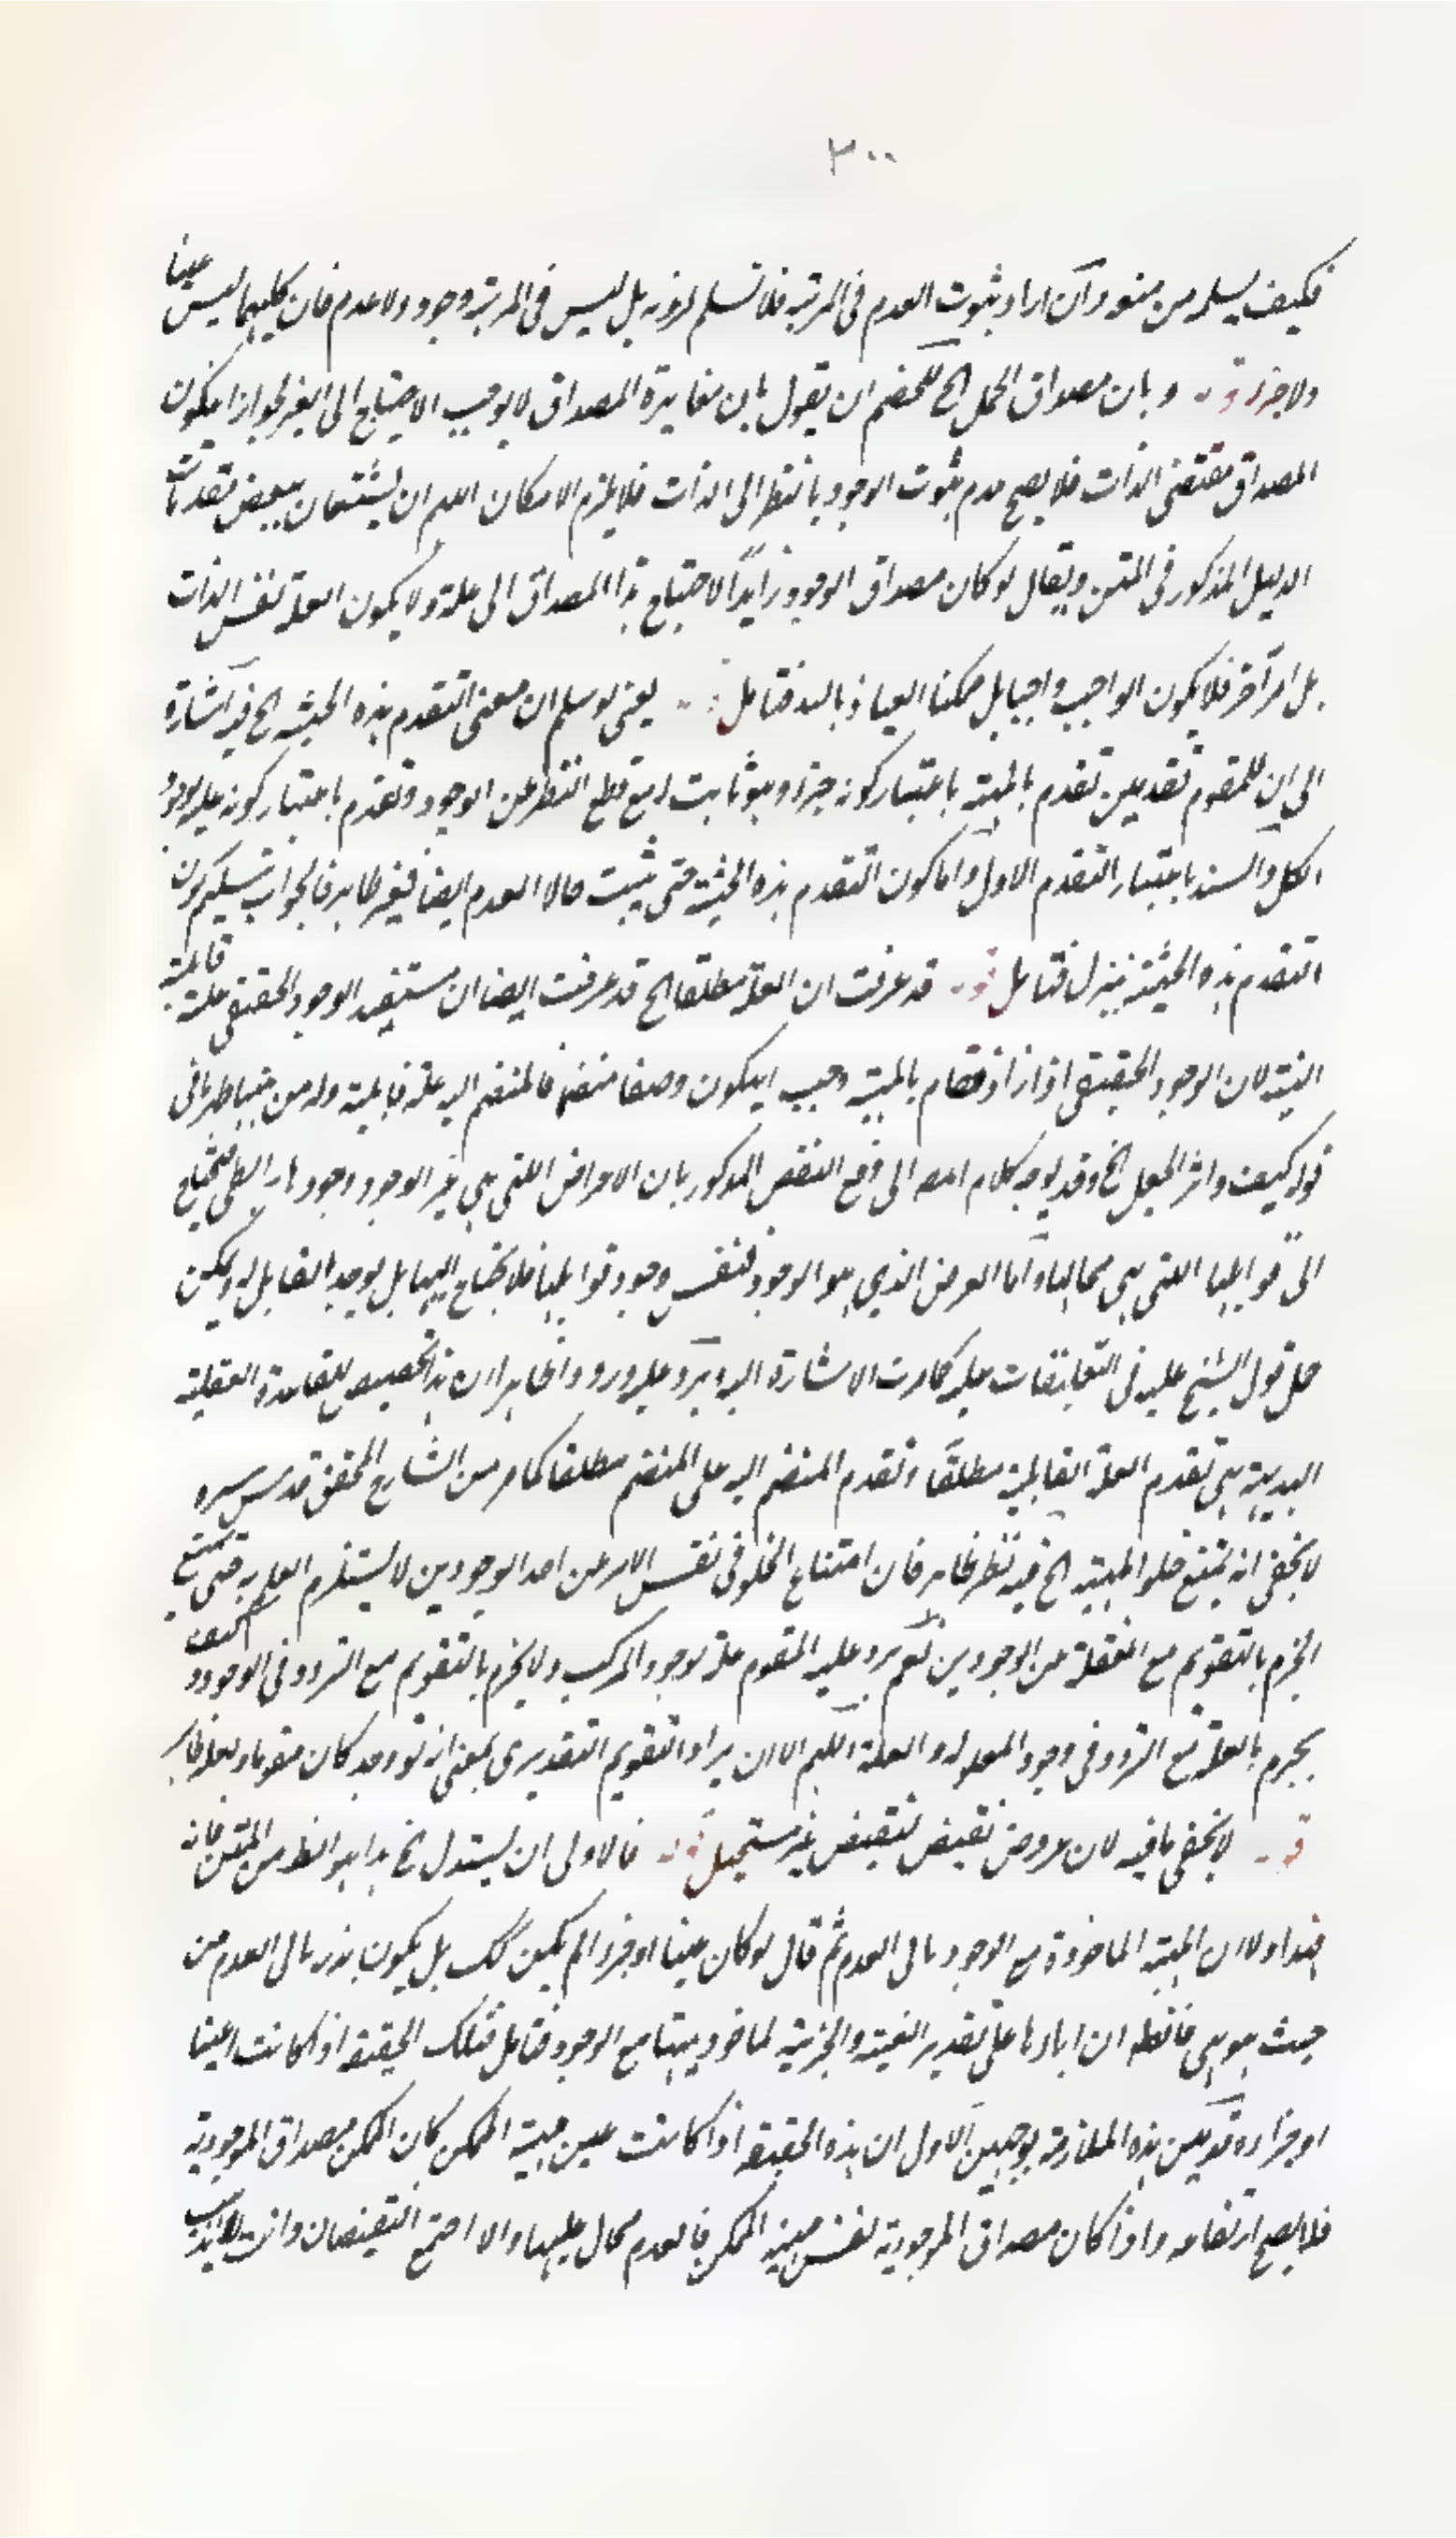 ٣٠٠
فكيف يسلمه من منعه وآن اراد ثبوت العدم فى المرتبة فلا نسلم لزومه بل ليس فى المرتبة وجود ولا عدم فان كليهما ليس عينا
ولا جزء قوله وبان مصداق الحمل الخ للخصم ان يقول بان مغايرة المصداق لا يوجب الاحتياج الى الغير لجواز ان يكون
المصداق مقتضى الذات فلا يصح عدم ثبوت الوجود بالنظر الى الذات فلا يلزم الامكان اللهم ان يستعان ببعض مقدمات
الدليل المذكور فى المتن ويقال لو كان مصداق الوجود زايدًا لاحتاج هذا المصداق الى علة ولا يكون العلة نفس الذات
بل امر آخر فلا يكون الواجب واجبا بل ممكنا العياذ بالله فتامل قوله يعنى لو سلم ان معنى التقدم بهذه الحيثية الخ فيه اشارة
الى ان للمقوم تقدمين تقدم بالمهية باعتبار كونه جزء وهو ثابت له مع قطع النظر عن الوجود وتقدم باعتبار كونه علة لوجود
الكل والسند باعتبار التقدم الاول واما كون التقدم بهذه الحيثية حتى يثبت حالا العدم ايضا فغير ظاهر فالجواب تسليم كون
التقدم بهذه الحيثية تنزل فتامل قوله قد عرفت ان العلة مطلقا الخ قد عرفت ايضا ان مستفيد الوجود الحقيقى علة قابلية
البتة لان الوجود الحقيقى اذا زاد وقام بالمهية وجب ان يكون وصفا منضما فالمنضم اليه علة قابلية وله من ههنا ظهر انى
قوله كيف واثر الجعل الخ وقد يوجه كلام المص الى دفع النقض المذكور بان الاعراض التى هى غير الوجود وجودها رابطى فيحتاج
الى قوابلها التى هى محالها واما العرض الذي هو الوجود فنفس وجود قوابلها فلا يحتاج اليها بل يوجد القابل به ويمكن
حمل قول الشيخ عليه فى التعليقات عليه كما مرت الاشارة اليه ويرد عليه ورود واظاهرا ان هذا تخصيص للقاعدة العقلية
البديهية هى تقدم العلة القابلية مطلقًا وتقدم المنضم اليه على المنضم مطلقا كما مر من الشارح المحقق قدس سره
لا يخفى انه يمتنع خلو المهية الخ فيه نظر ظاهر فان امتناع الخلو فى نفس الامر عن احد الوجودين لا يستلزم العلم به حتى يمتنع
الجزم بالتقويم مع الغفلة عن الوجودين نعم يرد عليه المقوم علة لوجود المركب ولا يجزم بالتقويم مع التردد فى الوجود وكيف
يجزم بالعلة مع التردد فى وجود المعلول والعلة اللهم الا ان يراد التقويم التقديرى بمعنى انه لو وجد كان مقوما ولعله ظاهر
قوله لا يخفى ما فيه لان عروض نقيض لنقيض غير مستحيل قوله فالاولى ان يستدل الخ هذا هو الظ من المتن فانه
اخذ اولا ان المهية الماخوذة مع الوجود تابى العدم ثم قال لو كان عينا او جزء الم يكن كك بل يكون بذاتها تابى العدم من
حيث هو هى فالظ ان اباءها على تقدير العينية والجزئية لماخوذيتها مع الوجود فتامل فتلك الحقيقة اذا كانت عينا
او جزء له تبين هذه الملازمة بوجهين الاول ان هذه الحقيقة اذا كانت عين مهية الممكن كان الممكن مصداق الموجودية
فلا يصح ارتفاعه واذا كان مصداق الموجودية نفس مهية الممكن فالعدم محال عليها والا اجتمع النقيضان وانت لا يذهب